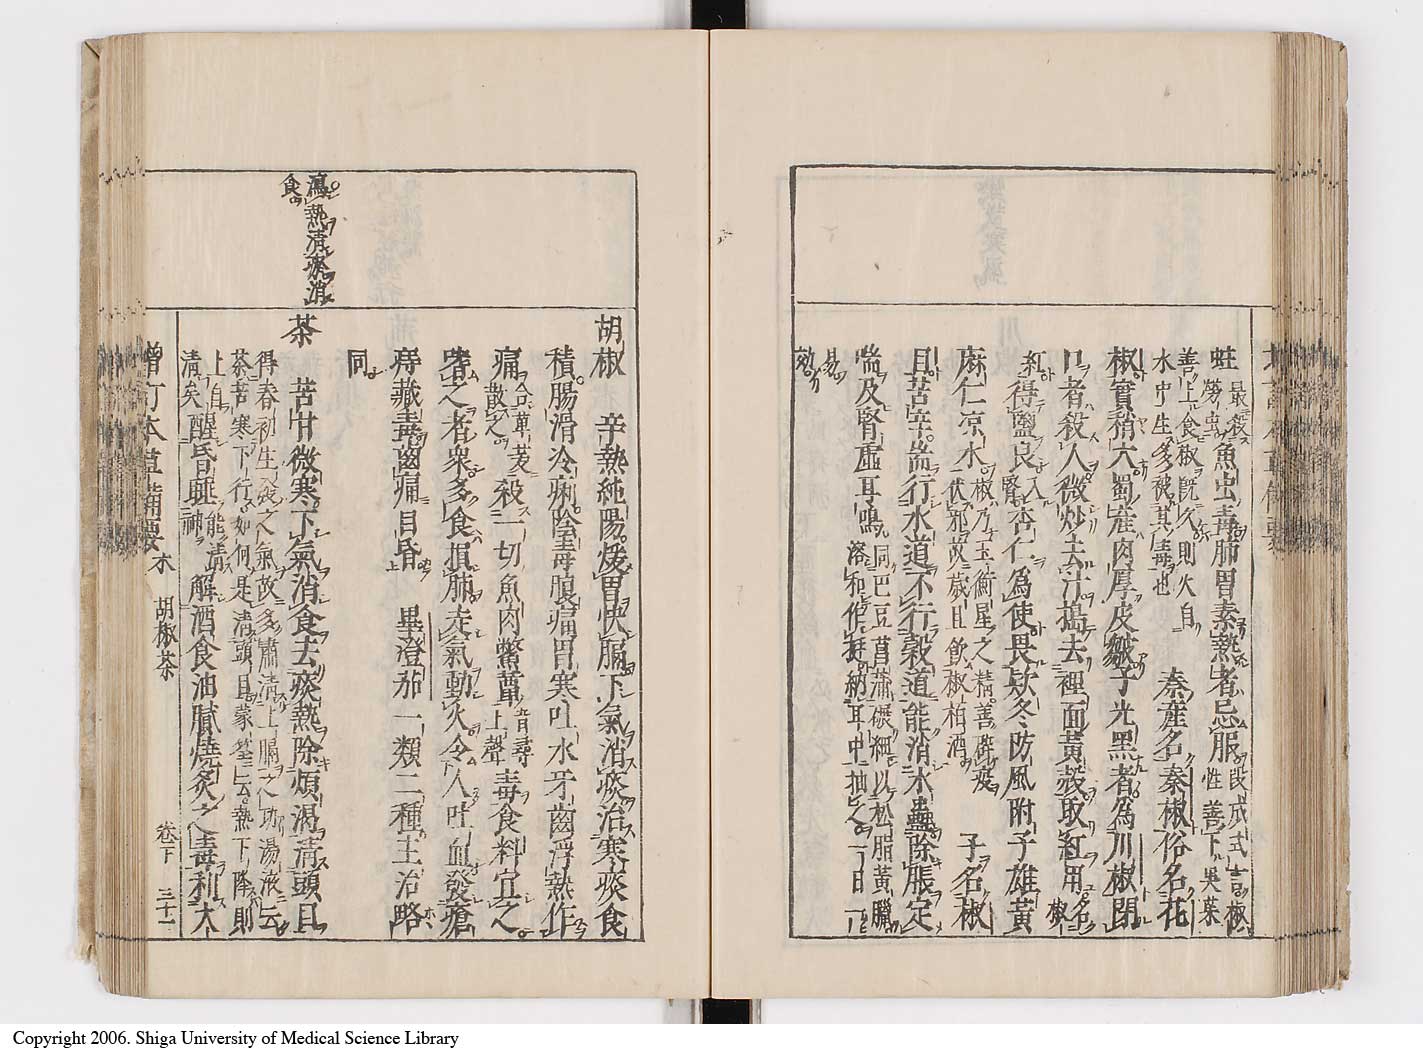 蛀最殺勞虫魚虫毒肺胃素熱者忌服段成式言椒性善下吳茱
善上食椒既久則火自
水中生多被其毒也 秦產名秦椒俗名花
椒實稍大蜀產肉厚皮皺子光黑者為川椒閉
口者殺人微炒去汁搗去裡面黃殼取紅用名椒
紅得鹽良入腎杏仁為使畏款冬防風附子雄黃
麻仁凉水椒乃玉衡星之精善辟疫伏邪故歲旦飲椒柏酒 子名椒
目苦辛耑行水道不行穀道能消水蠱除脹定
喘及腎虛耳鳴同巴豆菖蒲碾細以松脂黃臘溶和作挺納耳中抽之一日一
易
効
瀉熱清痰消
食
胡椒 辛熱純陽煖胃快膈下氣消痰治寒痰食
積腸滑冷痢陰毒腹痛胃寒吐水牙齒浮熱作
痛合蓽茇散之殺一切魚肉鱉蕈音尋上聲毒食料宜之
嗜之者衆多食損肺走氣動火令人吐血發瘡
痔藏毒齒痛目昏 畢澄茄一類二種主治略
同
茶 苦甘微寒下氣消食去痰熱除煩渴清頭目
得春初生發之氣故多肅清上膈之功湯液云
茶苦寒下行如何是清頭目蒙筌云熱下降則
上自清矣醒昏睡能清神解酒食油膩燒炙之毒利大
增訂本草備要 木 胡椒茶 卷下 三十一